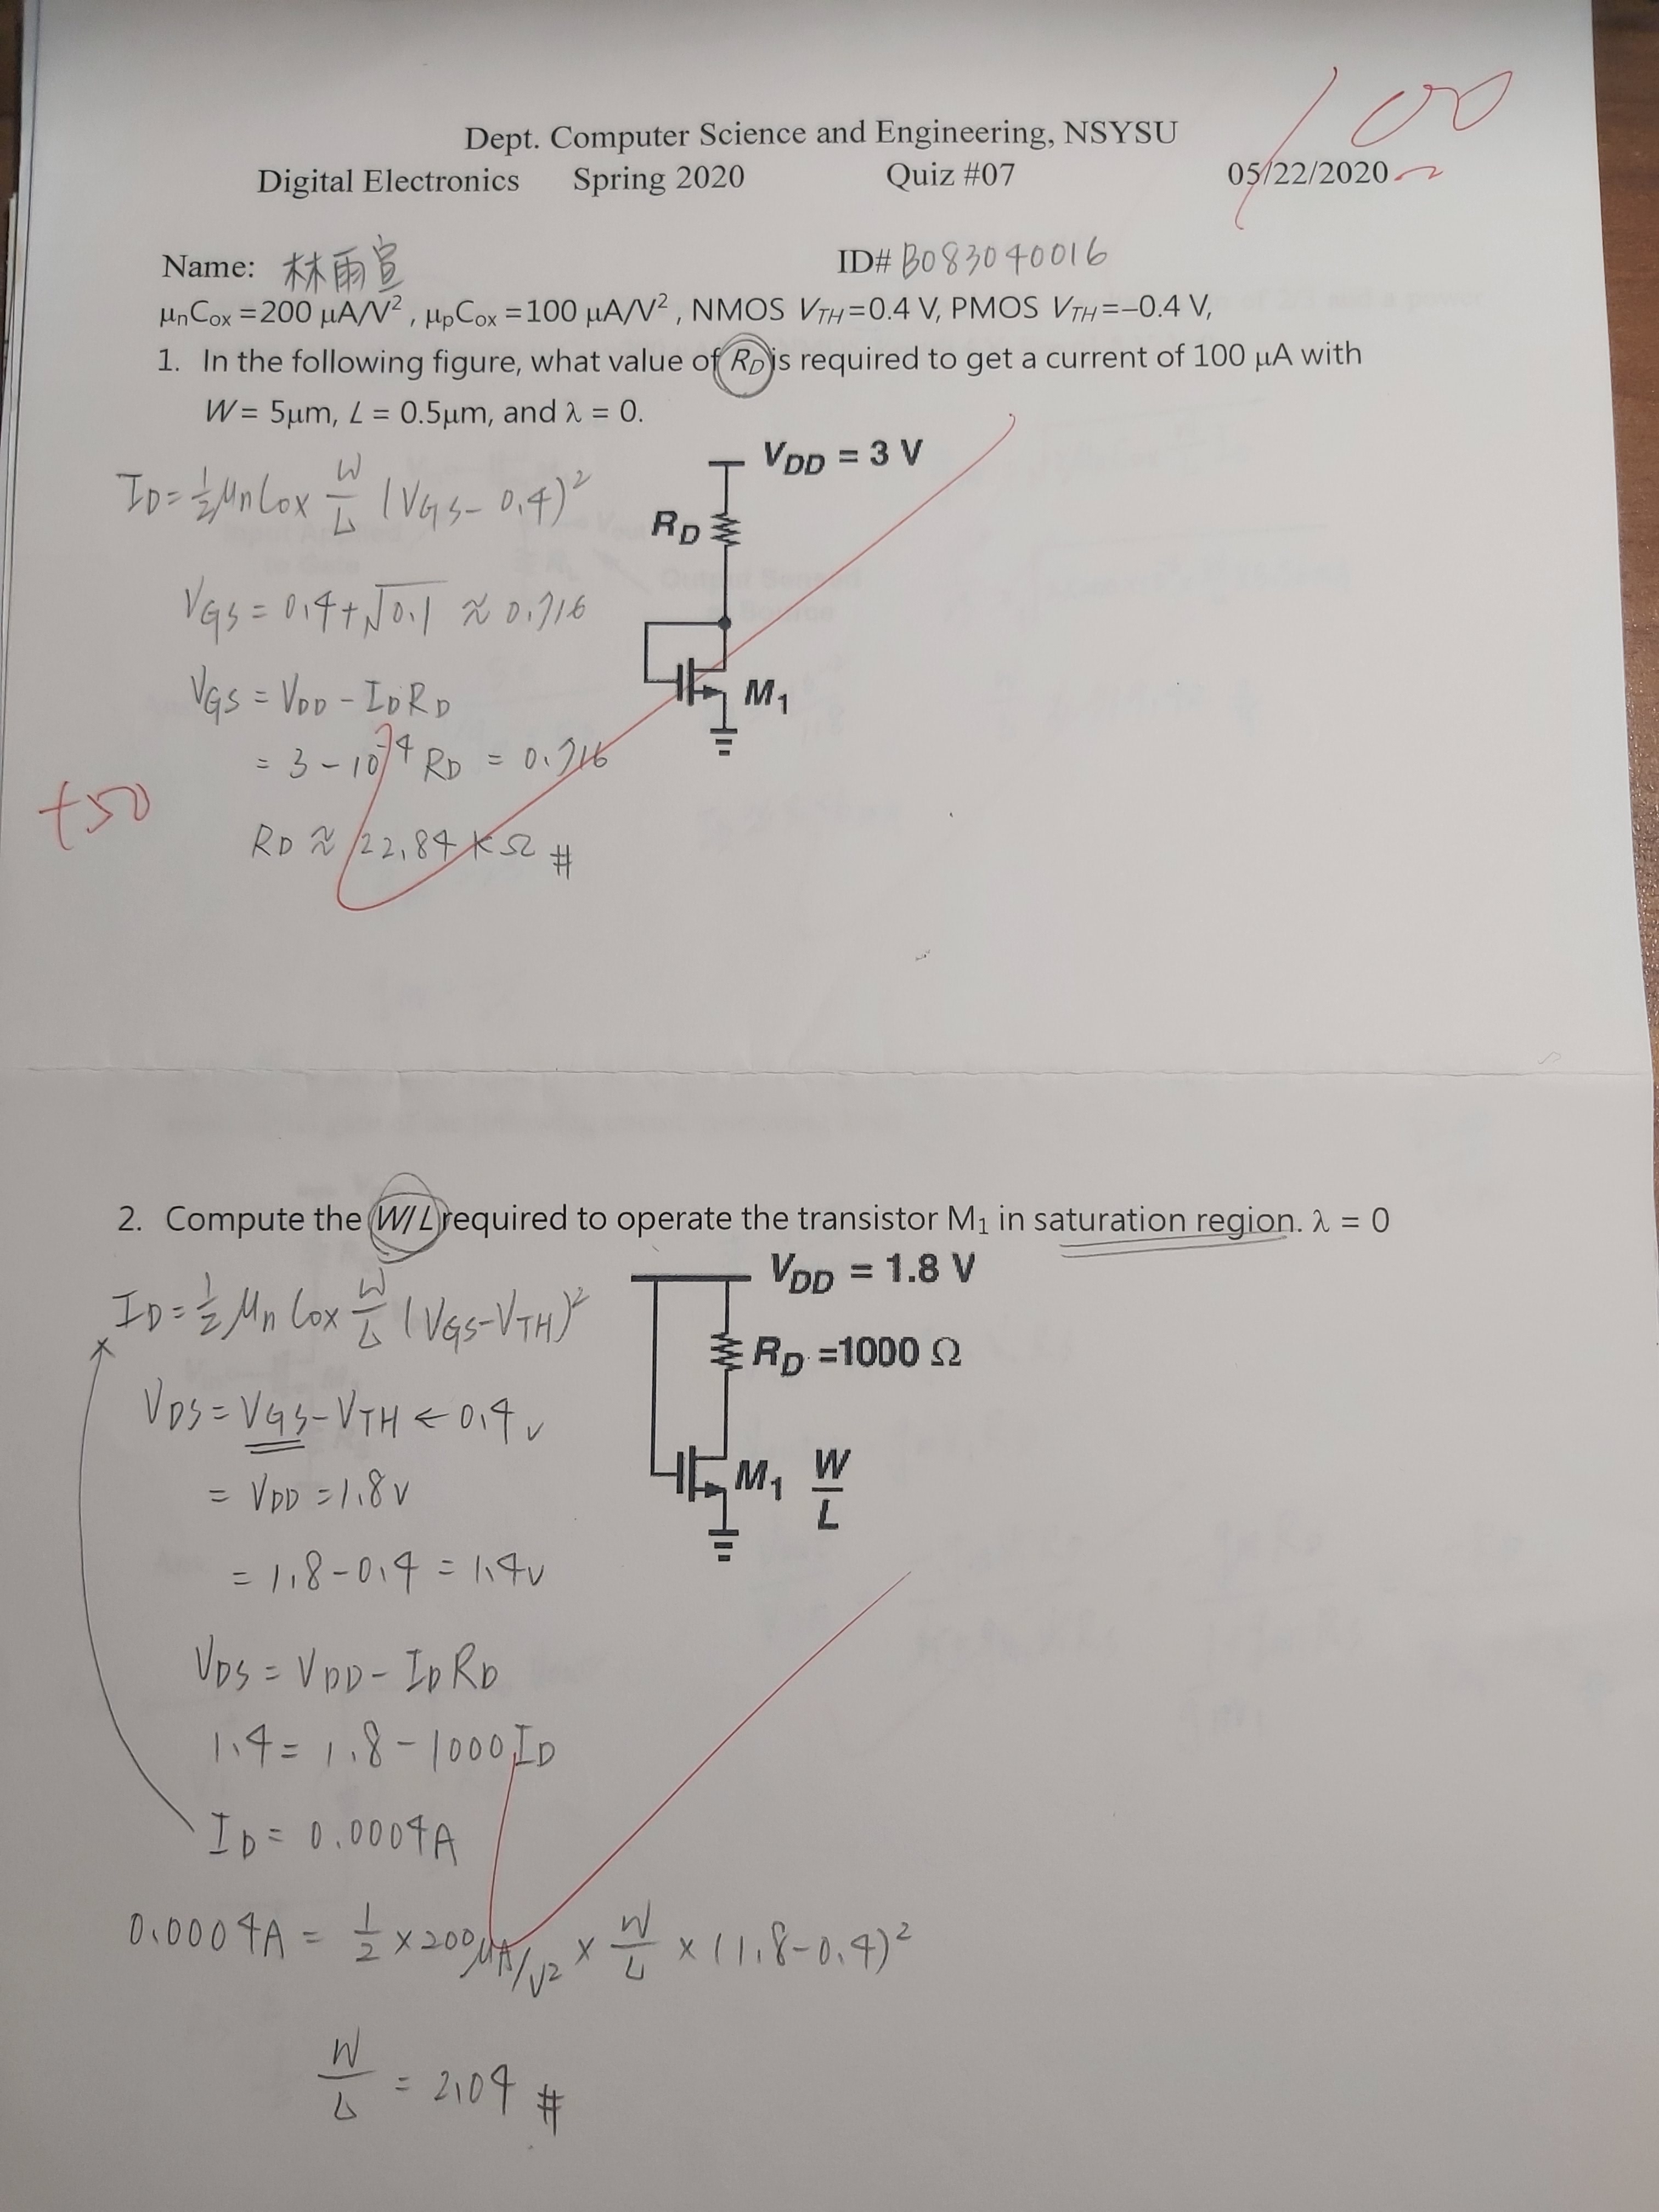 100
Dept. Computer Science and Engineering, NSYSU
Digital Electronics Spring 2020 Quiz #07 05/22/2020
Name: 林雨宣 ID# B083040016
μnCox =200 μA/V², μpCox =100 μA/V², NMOS VTH=0.4 V, PMOS VTH=–0.4 V,
1. In the following figure, what value of RD is required to get a current of 100 μA with
W= 5μm, L = 0.5μm, and λ = 0.
VDD = 3 V
ID = 1/2 μnCox W/L (VGS - 0.4)²
RD
VGS = 0.4 + √0.1 ≈ 0.716
VGS = VDD - IDRD
M1
= 3 - 10⁻⁴ RD = 0.716
+50
RD ≈ 22.84 kΩ #
2. Compute the W/L required to operate the transistor M1 in saturation region. λ = 0
VDD = 1.8 V
ID = 1/2 μn Cox W/L (VGS-VTH)²
RD =1000 Ω
VDS = VGS - VTH ← 0.4v
= VDD = 1.8v
M1 W/L
= 1.8 - 0.4 = 1.4v
VDS = VDD - IDRD
1.4 = 1.8 - 1000 ID
ID = 0.0004A
0.0004A = 1/2 × 200 μA/V² × W/L × (1.8-0.4)²
W/L = 2.04 #